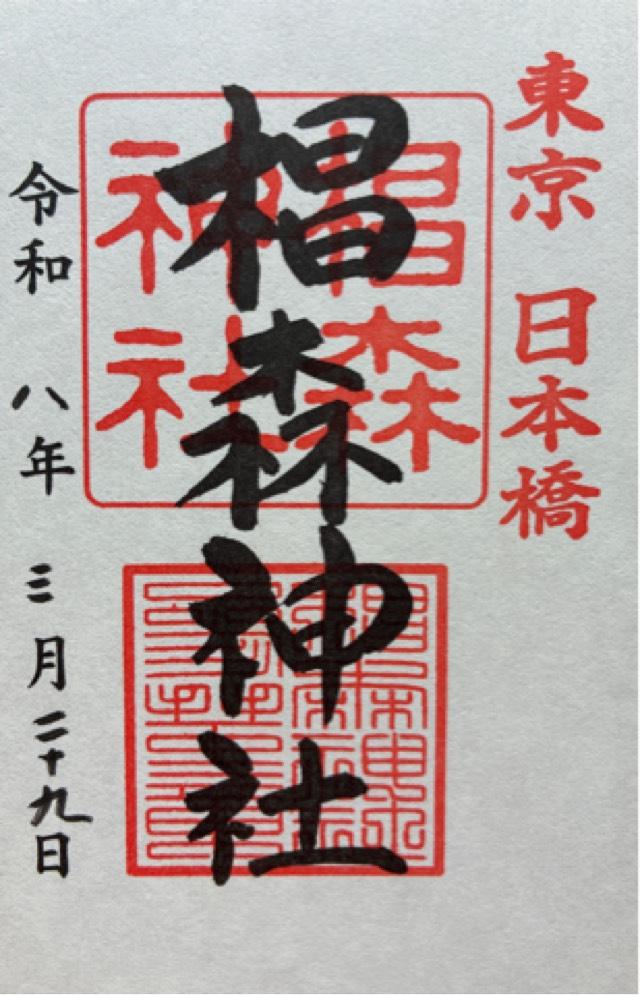 東京 日本橋
椙森
神社
椙森神社
令和 八年 三月二十九日